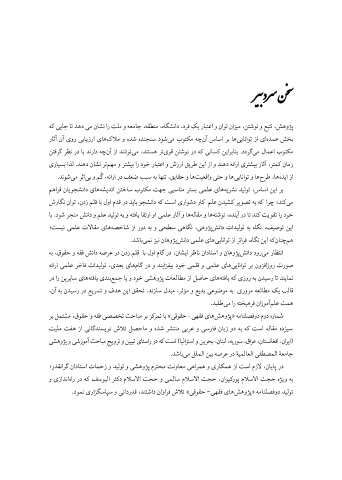 سخن سردبیر
پژوهش، تتبع و نوشتن، میزان توان و اعتبار یک فرد، دانشگاه، منطقه، جامعه و ملت را نشان می دهد تا جایی که
بخش عمده‌ای از توانایی‌ها بر اساس آن‌چه مکتوب می‌شود سنجیده شده و ملاک‌های ارزیابی روی آن آثار
مکتوب اعمال می‌گردد. بنابراین کسانی که در نوشتن قوی‌تر هستند، می‌توانند از آن‌چه دارند با در نظر گرفتن
زمان کمتر، آثار بیشتری ارائه دهند و از این طریق ارزش و اعتبار خود را بیشتر و مهم‌تر نشان دهند. لذا بسیاری
از ایده‌ها، طرح‌ها و توانایی‌ها و حتی واقعیت‌ها و حقایق، تنها به سبب ضعف در ارائه، گُم و بی‌اثر می‌شوند.
بر این اساس، تولید نشریه‌های علمی بستر مناسبی جهت مکتوب ساختن اندیشه‌های دانشجویان فراهم
می‌کند؛ چرا که به تصویر کشیدن علم کار دشواری است که دانشجو باید در قدم اول با قلم زدن، توان نگارش
خود را تقویت کند تا در آینده، نوشته‌ها و مقاله‌ها و آثار علمی او ارتقا یافته و به تولید علم و دانش منجر شود. با
این توصیف، نگاه به تولیدات دانش‌پژوهی، نگاهی سطحی و به دور از شاخصه‌های مقالات علمی نیست؛
هم‌چنان‌که این نگاه، فراتر از توانایی‌های علمی دانش‌پژوهان نیز نمی‌باشد.
انتظار می‌رود دانش‌پژوهان و استادان ناظر ایشان، در گام اول با قلم زدن در عرصه دانش فقه و حقوق، به
صورت روزافزون بر توانایی‌های علمی و قلمی خود بیفزایند و در گام‌های بعدی، تولیدات فاخر علمی ارائه
نمایند تا زمانی که یافته‌های حاصل از مطالعات پژوهشی خود و یا جمع‌بندی یافته‌های سایرین را در
قالب یک مطالعه مروری به موضوعی بدیع و مؤثر، مبدل سازند. تحقق این هدف و تسریع در رسیدن به آن،
همت علم‌آموزان فرهیخته را می‌طلبد.
شماره دوم دوفصلنامه «پژوهش‌های فقهی - حقوقی» با تمرکز بر مباحث تخصصی فقه و حقوق، مشتمل بر
سیزده مقاله است که به دو زبان فارسی و عربی منتشر شده و ماحصل تلاش نویسندگانی از هفت ملیت
(ایران، افغانستان، عراق، سوریه، لبنان، بحرین و استرالیا) است که در راستای تبیین و ترویج مباحث آموزشی و پژوهشی
جامعة المصطفی العالمیة در عرصه بین الملل می‌باشد.
در پایان، لازم است از همکاری و همراهی معاونت محترم پژوهشی و تولید و زحمات استادان گرانقدر؛
به ویژه حجت الاسلام پورکیوان، حجت الاسلام سالمی و حجت الاسلام دکتر الیوسف که در راه‌اندازی و
تولید دوفصلنامه «پژوهش‌های فقهی- حقوقی» تلاش فراوان داشتند، قدردانی و سپاسگزاری نمود.